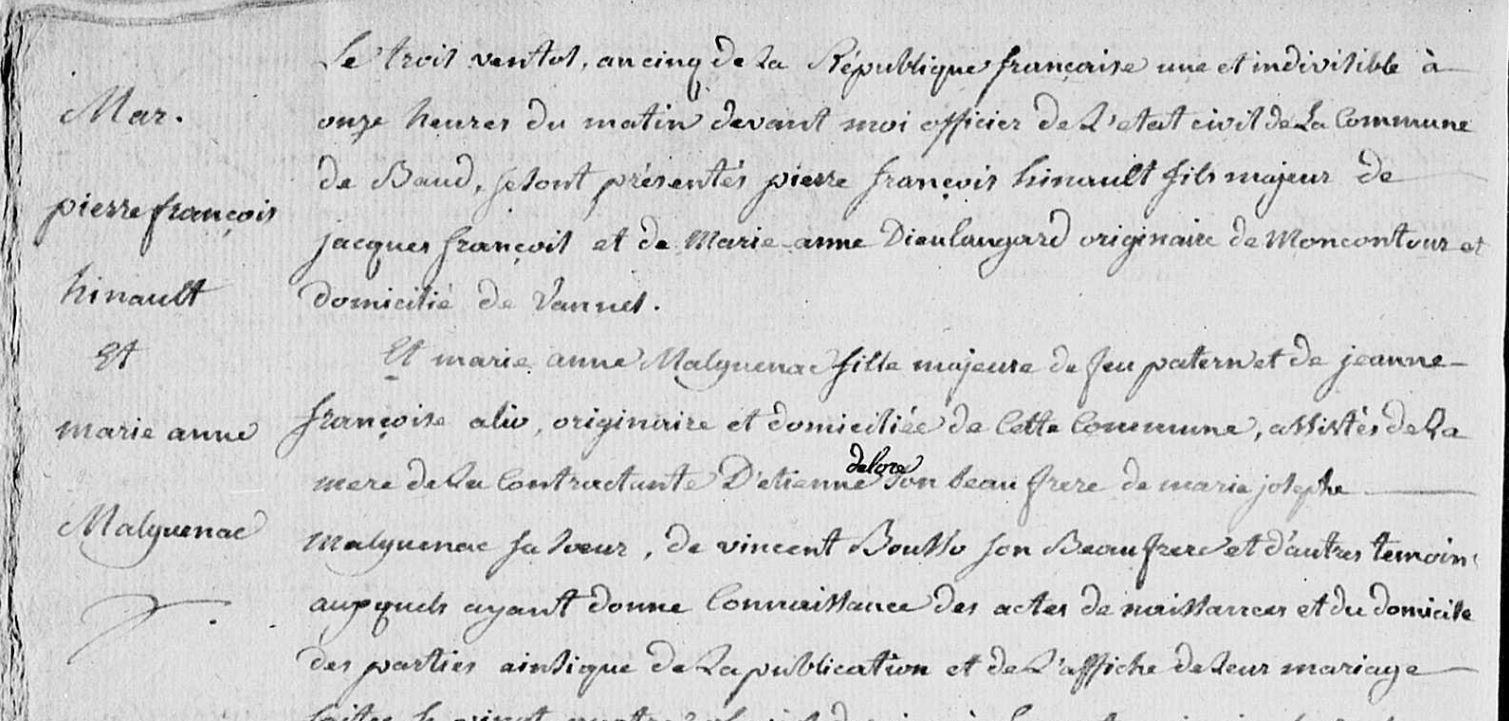 Mar.
pierre françois
hinault
Et
marie anne
Malguenac
Le trois ventos, an cinq de la République françaoise une et indivisible à
onze heures du matin devant moi officier de L'etat civil de La Commune
de Baud, se sont présentés pierre françois hinault fils majeur de
jacques françois et de Marie-anne Dieulangard originaire de Moncontour et
domicilié de Vannes.
Et marie anne Malguenac fille majeure de feu patern et de jeanne-
françoise alio, originaire et domiciliée de Cette Commune, assistés de La
mere de La Contractante D'etienne delore son beau frere de marie josephe
Malguenac sa soeur, de vincent Bousso son Beau frere et d'autres temoin
auxquels ayant donne Connaissance des actes de naissances et du domicile
des parties ainsi que de La publication et de L'affiche de Leur mariage